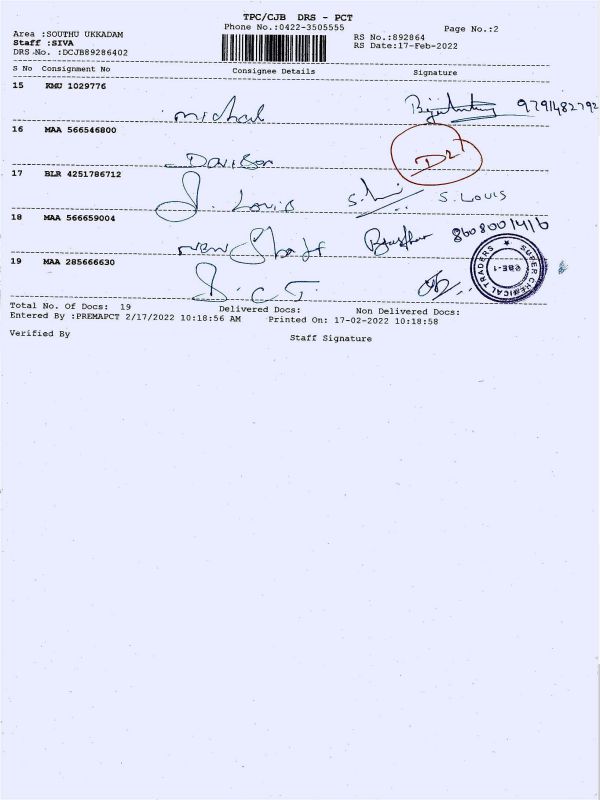 TPC/CJB DRS - PCT
Phone No.:0422-3505555
Page No.:2
Area :SOUTHU UKKADAM
RS No.:892864
Staff :SIVA
RS Date:17-Feb-2022
DRS No. :DCJB89286402
S No Consignment No Consignee Details Signature
15 KMU 1029776
michal 9791482792
16 MAA 566546800
Davison
17 BLR 4251786712
J. Louis S. LOUIS
18 MAA 566659004
new
19 MAA 285666630
SUPER CHEMICAL TRADERS
CBE-1
Total No. Of Docs: 19 Delivered Docs: Non Delivered Docs:
Entered By :PREMAPCT 2/17/2022 10:18:56 AM Printed On: 17-02-2022 10:18:58
Verified By
Staff Signature